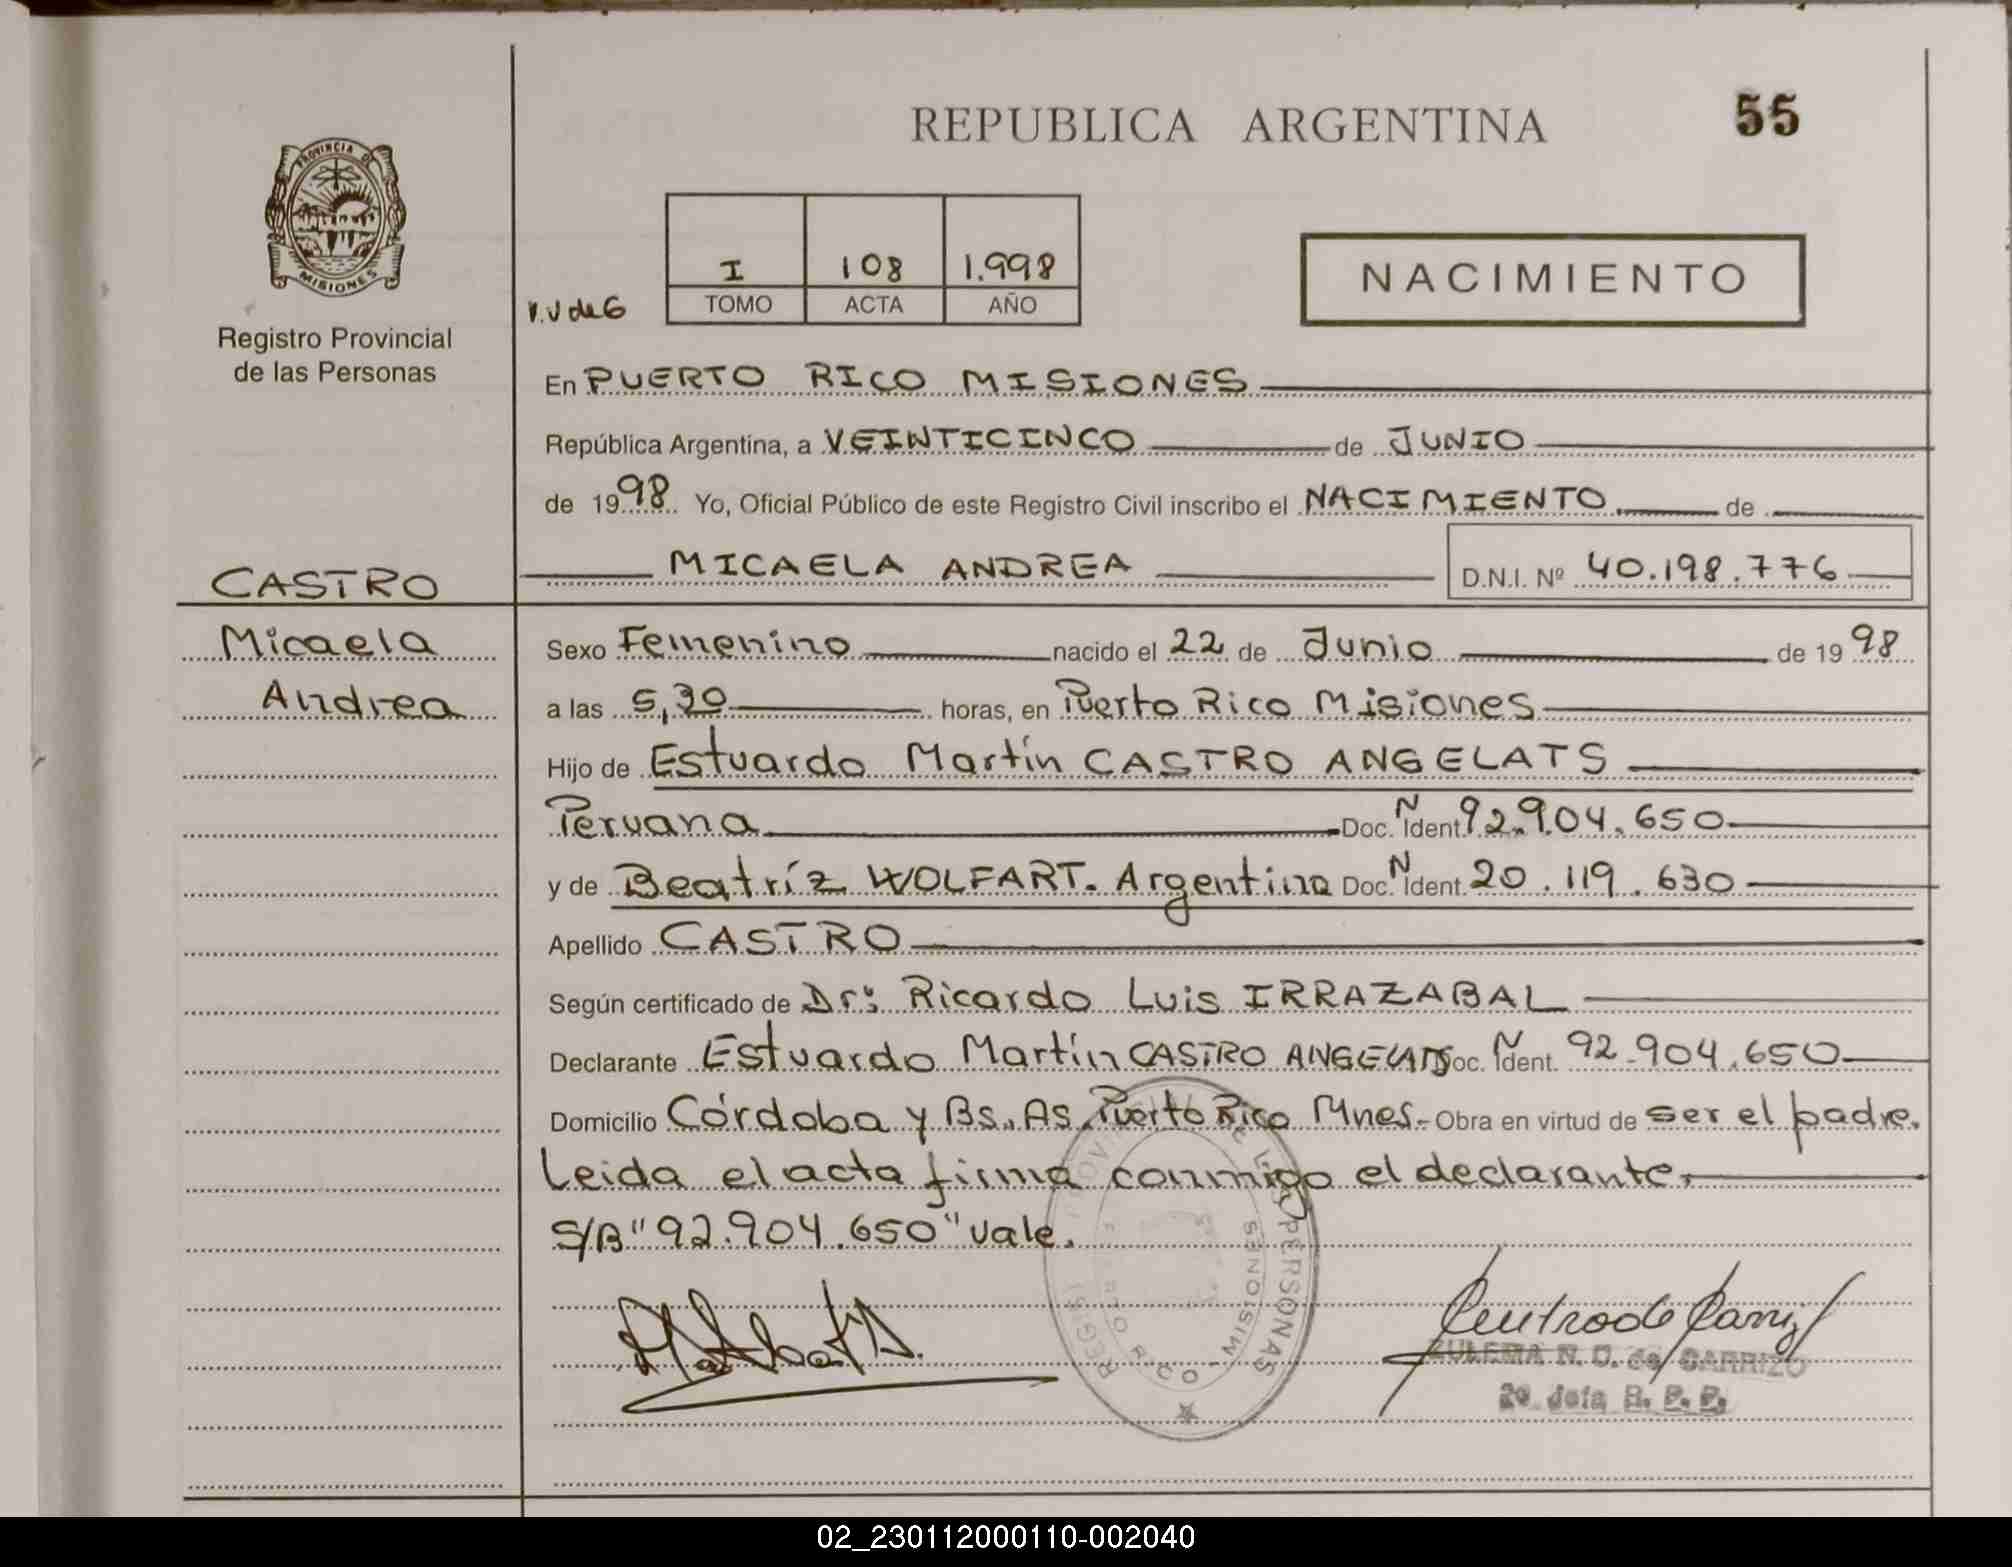 REPUBLICA ARGENTINA
55
PROVINCIA DE
MISIONES
Registro Provincial
de las Personas
I 108 1.998
TOMO ACTA AÑO
NACIMIENTO
En PUERTO RICO MISIONES
República Argentina, a VEINTICINCO de JUNIO
de 1998 Yo, Oficial Público de este Registro Civil inscribo el NACIMIENTO de
MICAELA ANDREA D.N.I. Nº 40.198.776
CASTRO
Micaela
Andrea
Sexo Femenino nacido el 22 de Junio de 1998
a las 5,30 horas, en Puerto Rico Misiones
Hijo de Estuardo Martín CASTRO ANGELATS
Peruana Doc. N Ident. 92.904.650
y de Beatríz WOLFART. Argentina Doc. N Ident. 20.119.630
Apellido CASTRO
Según certificado de Dr: Ricardo Luis IRRAZABAL
Declarante Estuardo Martín CASTRO ANGELATS Doc. N Ident. 92.904.650
Domicilio Córdoba y Bs. As. Puerto Rico Mnes.- Obra en virtud de ser el padre.
Leida el acta firma conmigo el declarante.
S/B "92.904.650" vale.
PERSONAS
RICO - MISIONES
ZULEMA N. C. de CARRIZO
2º Jefa R. P. P.
02_230112000110-002040